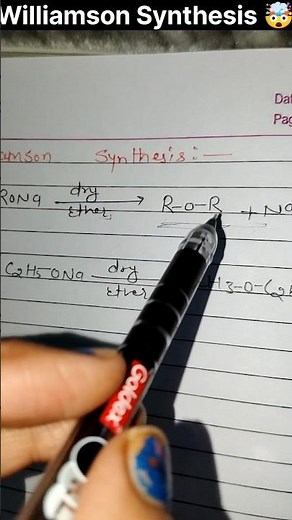 Williamson Synthesis 🤯
Da
Pag
amson Synthesis:—
RONa dry ether → R-O-R + Na
C2H5 ONa dry ether H3-O-C2H
Goldex